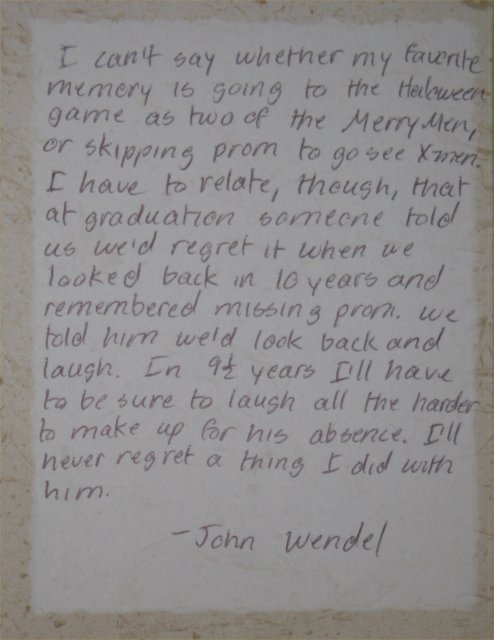 I can't say whether my favorite
memory is going to the Haloween
game as two of the Merry Men,
or skipping prom to go see X-men.
I have to relate, though, that
at graduation someone told
us we'd regret it when we
looked back in 10 years and
remembered missing prom. We
told him we'd look back and
laugh. In 9½ years I'll have
to be sure to laugh all the harder
to make up for his absence. I'll
never regret a thing I did with
him.
-John Wendel